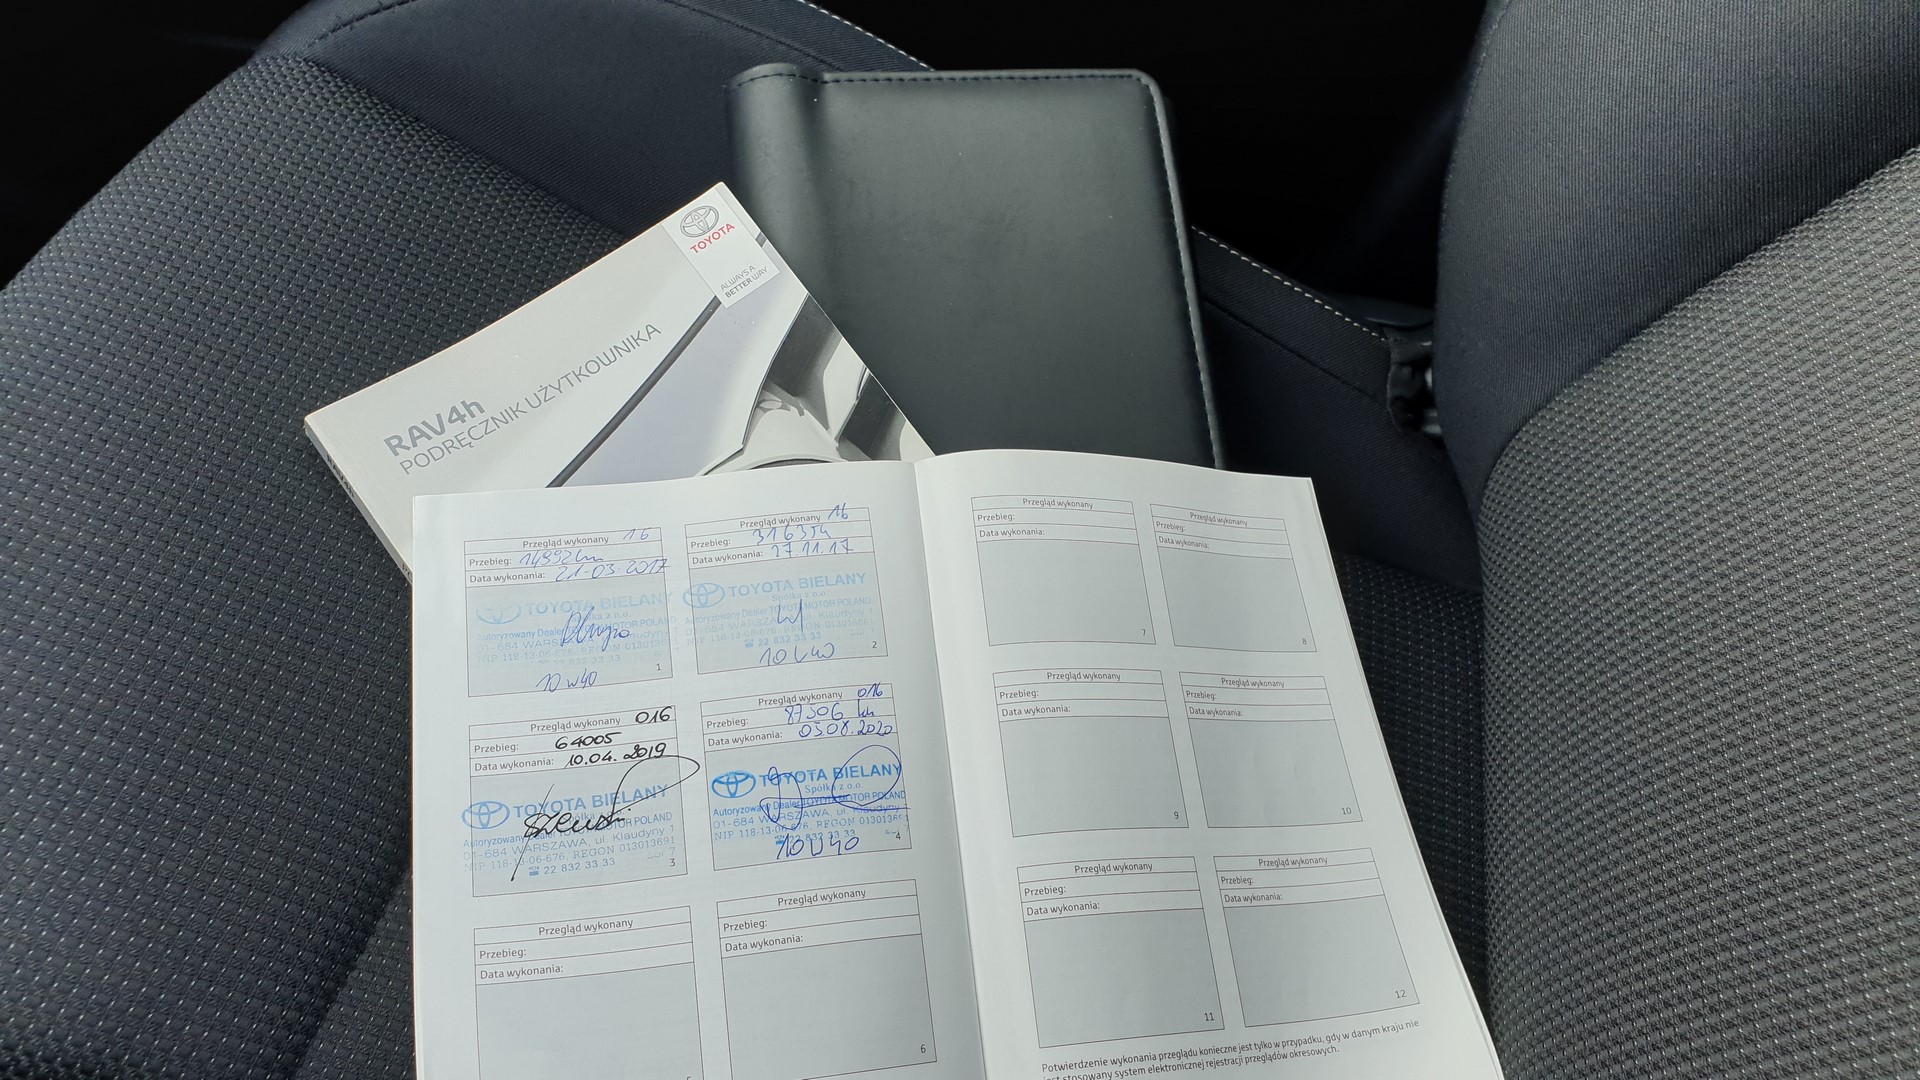 TOYOTA
ALWAYS A
BETTER WAY
RAV4h
PODRĘCZNIK UŻYTKOWNIKA
Przegląd wykonany 16
Przebieg: 14992km
Data wykonania: 21-03-2017
TOYOTA BIELANY
Spółka z o.o.
Autoryzowany Dealer TOYOTA MOTOR POLAND
01-684 WARSZAWA, ul. Klaudyny 1
NIP 118-13-06-676, REGON 013013691
22 832 33 33
1
10W40
Przegląd wykonany 16
Przebieg: 316354
Data wykonania: 27.11.17
TOYOTA BIELANY
Spółka z o.o.
Autoryzowany Dealer TOYOTA MOTOR POLAND
01-684 WARSZAWA, ul. Klaudyny 1
NIP 118-13-06-676, REGON 013013691
22 832 33 33
2
10W40
Przegląd wykonany 016
Przebieg: 64005
Data wykonania: 10.04.2019
TOYOTA BIELANY
Spółka z o.o.
Autoryzowany Dealer TOYOTA MOTOR POLAND
01-684 WARSZAWA, ul. Klaudyny 1
NIP 118-13-06-676, REGON 013013691
22 832 33 33
3
Przegląd wykonany 016
Przebieg: 87506 km
Data wykonania: 05.08.2020
TOYOTA BIELANY
Spółka z o.o.
Autoryzowany Dealer TOYOTA MOTOR POLAND
01-684 WARSZAWA, ul. Klaudyny 1
NIP 118-13-06-676, REGON 01301369
22 832 33 33
4
10W40
Przegląd wykonany
Przebieg:
Data wykonania:
5
Przegląd wykonany
Przebieg:
Data wykonania:
6
Przegląd wykonany
Przebieg:
Data wykonania:
7
Przegląd wykonany
Przebieg:
Data wykonania:
8
Przegląd wykonany
Przebieg:
Data wykonania:
9
Przegląd wykonany
Przebieg:
Data wykonania:
10
Przegląd wykonany
Przebieg:
Data wykonania:
11
Przegląd wykonany
Przebieg:
Data wykonania:
12
Potwierdzenie wykonania przeglądu konieczne jest tylko w przypadku, gdy w danym kraju nie
jest stosowany system elektronicznej rejestracji przeglądów okresowych.